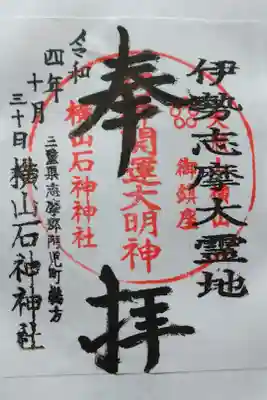 伊勢志摩大霊地
御鎮座
奉拝
開運大明神
横山石神神社
令和四年十月三十日
三重県志摩郡阿児町鵜方
横山石神神社